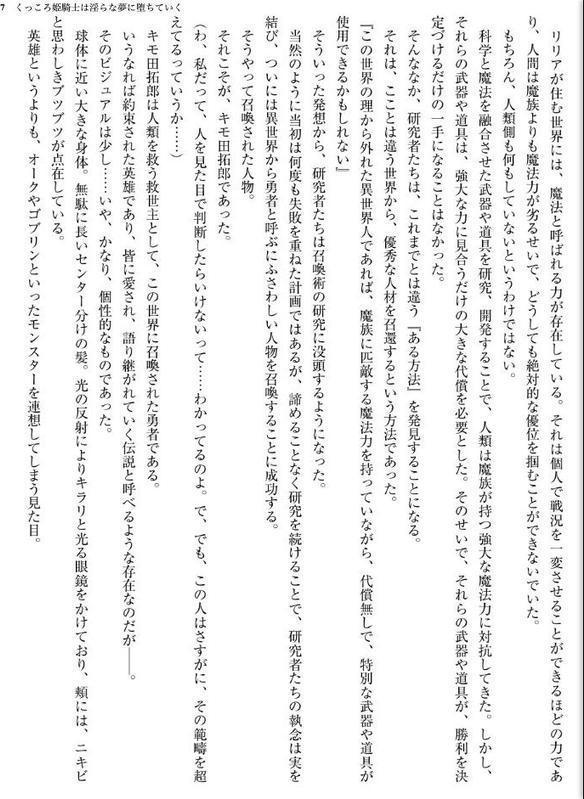 7 くっころ姫騎士は淫らな夢に堕ちていく
リリアが住む世界には、魔法と呼ばれる力が存在している。それは個人で戦況を一変させることができるほどの力であ
り、人間は魔族よりも魔法力が劣るせいで、どうしても絶対的な優位を掴むことができないでいた。
もちろん、人類側も何もしていないというわけではない。
科学と魔法を融合させた武器や道具を研究、開発することで、人類は魔族が持つ強大な魔法力に対抗してきた。しかし、
それらの武器や道具は、強大な力に見合うだけの大きな代償を必要とした。そのせいで、それらの武器や道具が、勝利を決
定づけるだけの一手になることはなかった。
そんななか、研究者たちは、これまでとは違う『ある方法』を発見することになる。
それは、こことは違う世界から、優秀な人材を召還するという方法であった。
『この世界の理から外れた異世界人であれば、魔族に匹敵する魔法力を持っていながら、代償無しで、特別な武器や道具が
使用できるかもしれない』
そういった発想から、研究者たちは召喚術の研究に没頭するようになった。
当然のように当初は何度も失敗を重ねた計画ではあるが、諦めることなく研究を続けることで、研究者たちの執念は実を
結び、ついには異世界から勇者と呼ぶにふさわしい人物を召喚することに成功する。
そうやって召喚された人物。
それこそが、キモ田拓郎であった。
(わ、私だって、人を見た目で判断したらいけないって……わかってるのよ。で、でも、この人はさすがに、その範疇を超
えてるっていうか……)
キモ田拓郎は人類を救う救世主として、この世界に召喚された勇者である。
いうなれば約束された英雄であり、皆に愛され、語り継がれていく伝説と呼べるような存在なのだが――。
そのビジュアルは少し……いや、かなり、個性的なものであった。
球体に近い大きな身体。無駄に長いセンター分けの髪。光の反射によりキラリと光る眼鏡をかけており、頬には、ニキビ
と思わしきブツブツが点在している。
英雄というよりも、オークやゴブリンといったモンスターを連想してしまう見た目。